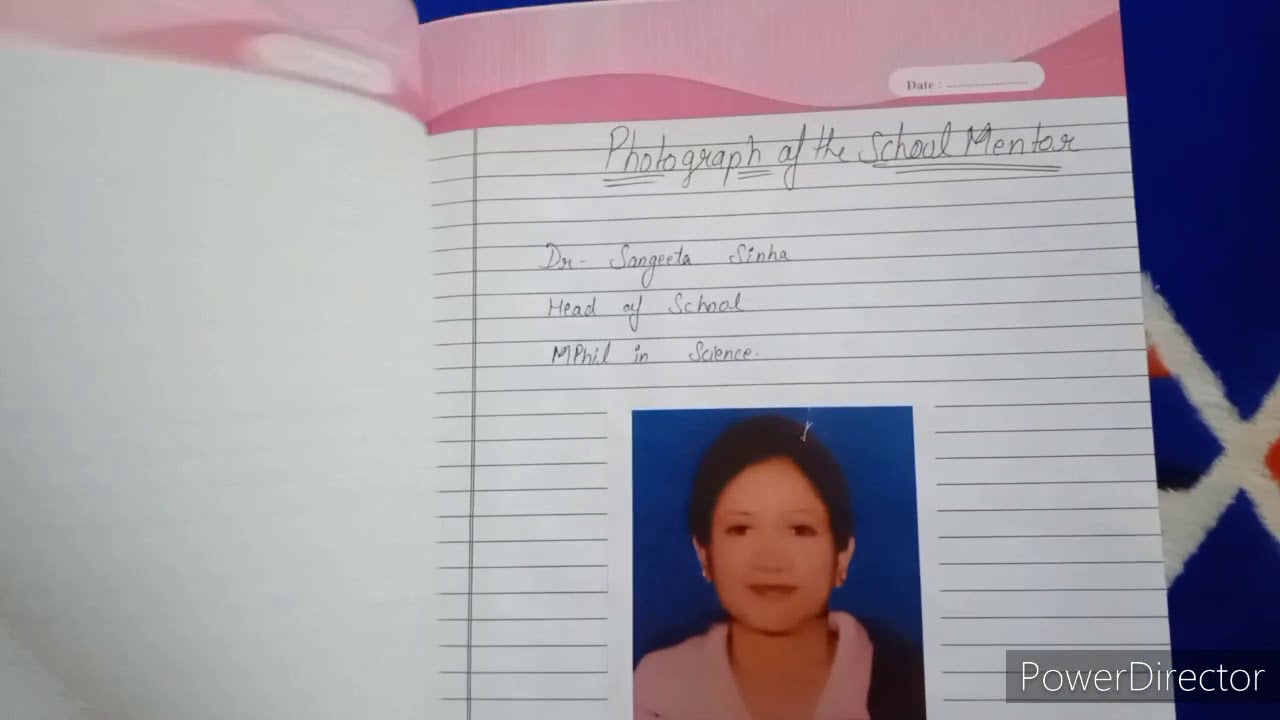 Date : ......................
Photograph of the School Mentor
Dr- Sangeeta Sinha
Head of School
MPhil in Science.
PowerDirector